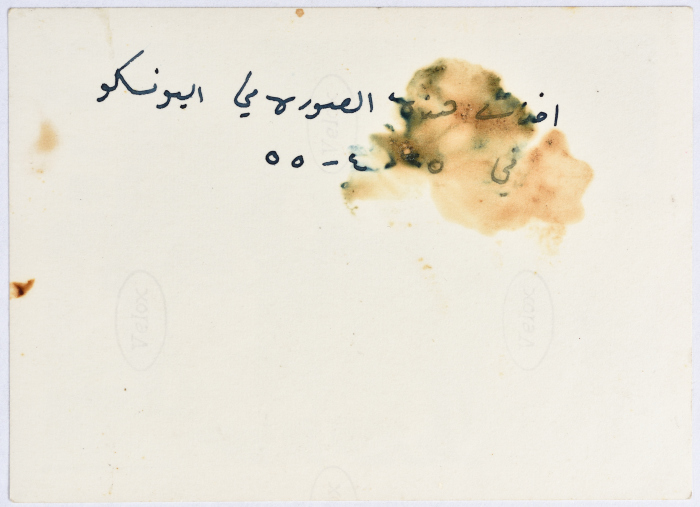 اخذت هذه الصوره في اليونسكو
في ٥ - ٤ - ٥٥
Velox
Velox
Velox